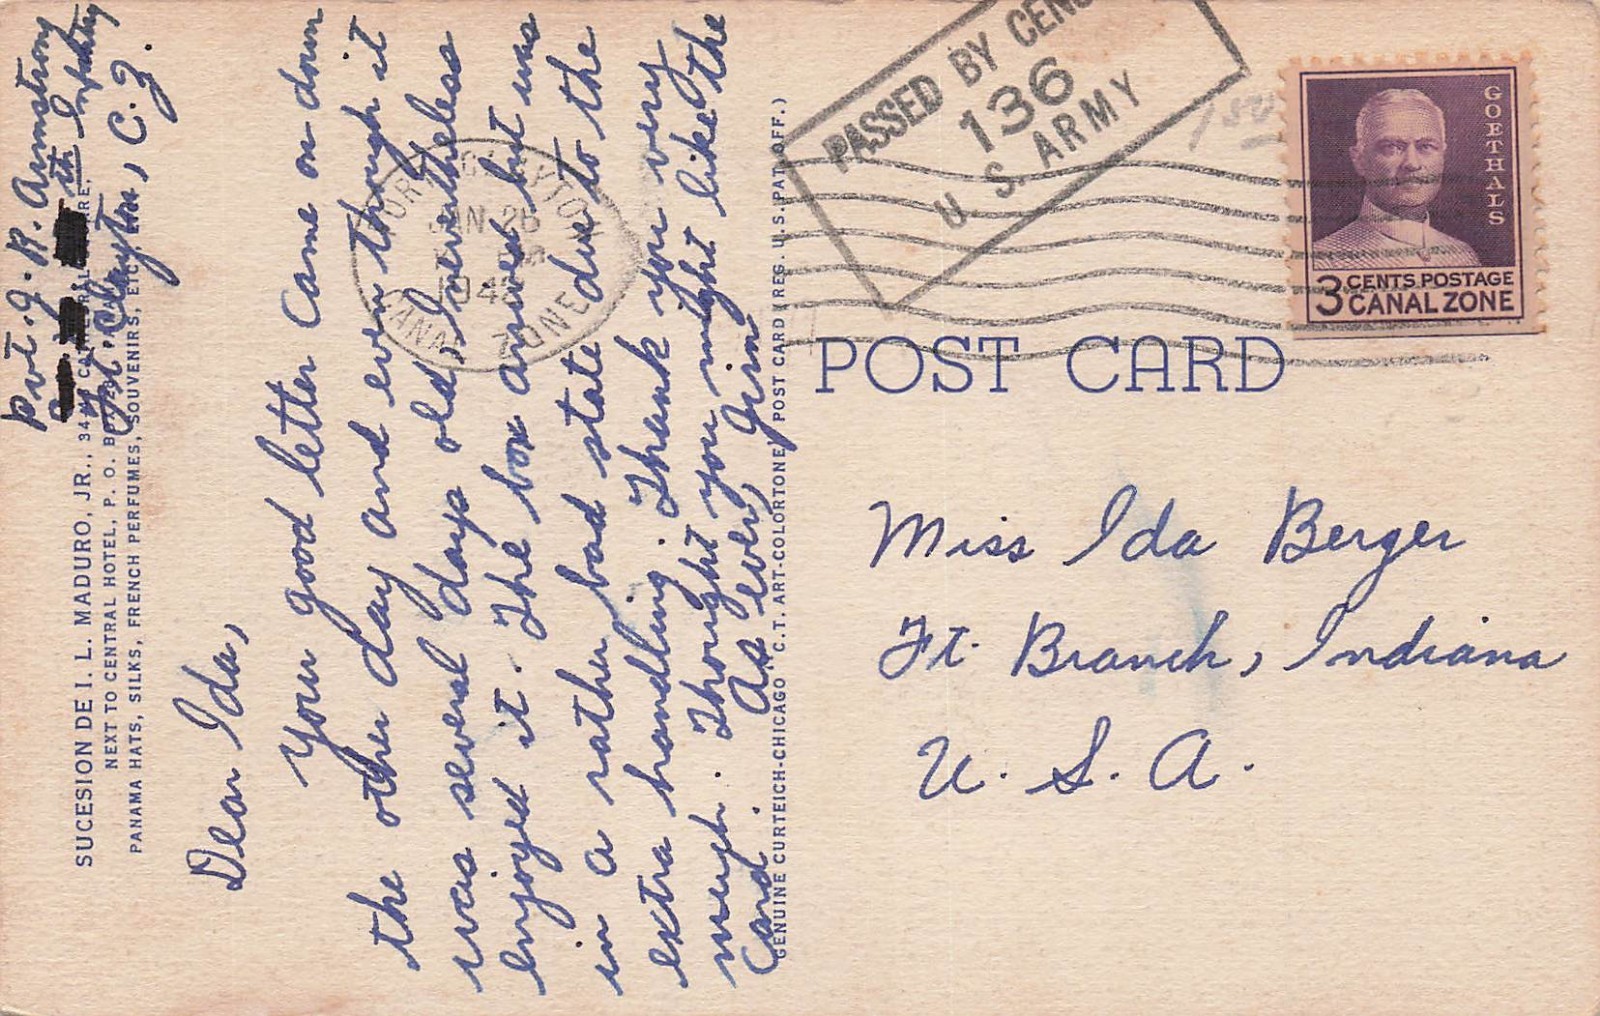 Pvt. J. R. Armstrong
th Infantry
Ft. Clayton, C. Z.
SUCESION DE I. L. MADURO, JR., 34
NEXT TO CENTRAL HOTEL, P. O. B
PANAMA HATS, SILKS, FRENCH PERFUMES, SOUVENIRS, ETC
Dear Ida,
Your good letter came on down
the other day and even though it
was several days old, I nevertheless
enjoyed it. The box arrived but was
in a rather bad state due to the
extra handling. Thank you very
much. Thought you might like the
card.
As ever, Jim
GENUINE CURTEICH-CHICAGO "C.T. ART-COLORTONE" POST CARD (REG. U.S. PAT. OFF.)
FORT CLAYTON
JAN 26
CANAL ZONE
PASSED BY CENS
136
U. S. ARMY
GOETHALS
3 CENTS POSTAGE
CANAL ZONE
POST CARD
Miss Ida Berger
Ft. Branch, Indiana
U. S. A.